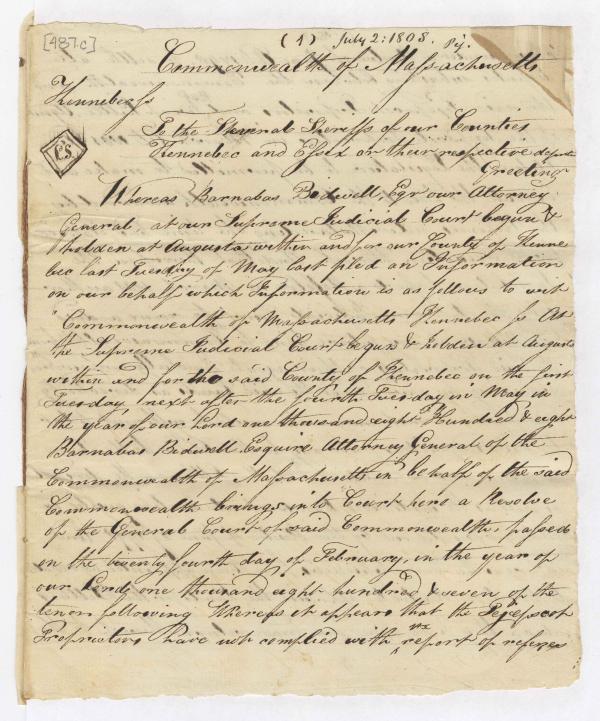 [487.c]
(1) July 2: 1808. Pej.
Commonwealth of Massachusetts
Kennebec ss
To the Several Sheriffs of our Counties
L.S.
Kennebec and Essex or their respective deputies
Greeting
Whereas Barnabas Bidwell, Esqr our Attorney
General, at our Supreme Judicial Court begun &
holden at Augusta within and for our County of Kenne
bec last Tuesday of May last filed an Information
on our behalf which Information is as follows to wit
"Commonwealth of Massachusetts Kennebec ss At
the Supreme Judicial Court begun & holden at Augusta
within and for the said County of Kennebec on the first
Tuesday next after the fourth Tuesday in May in
the year of our Lord one thousand eight Hundred & eight
Barnabas Bidwell Esquire Attorney General of the
Commonwealth of Massachusetts in behalf of the said
Commonwealth brings into Court here a Resolve
of the General Court of said Commonwealth, passed
on the twenty fourth day of February, in the year of
our Lord, one thousand eight hundred & seven of the
tenor following Whereas it appears that the Pejepscot
Proprietors have not complied with report of referees